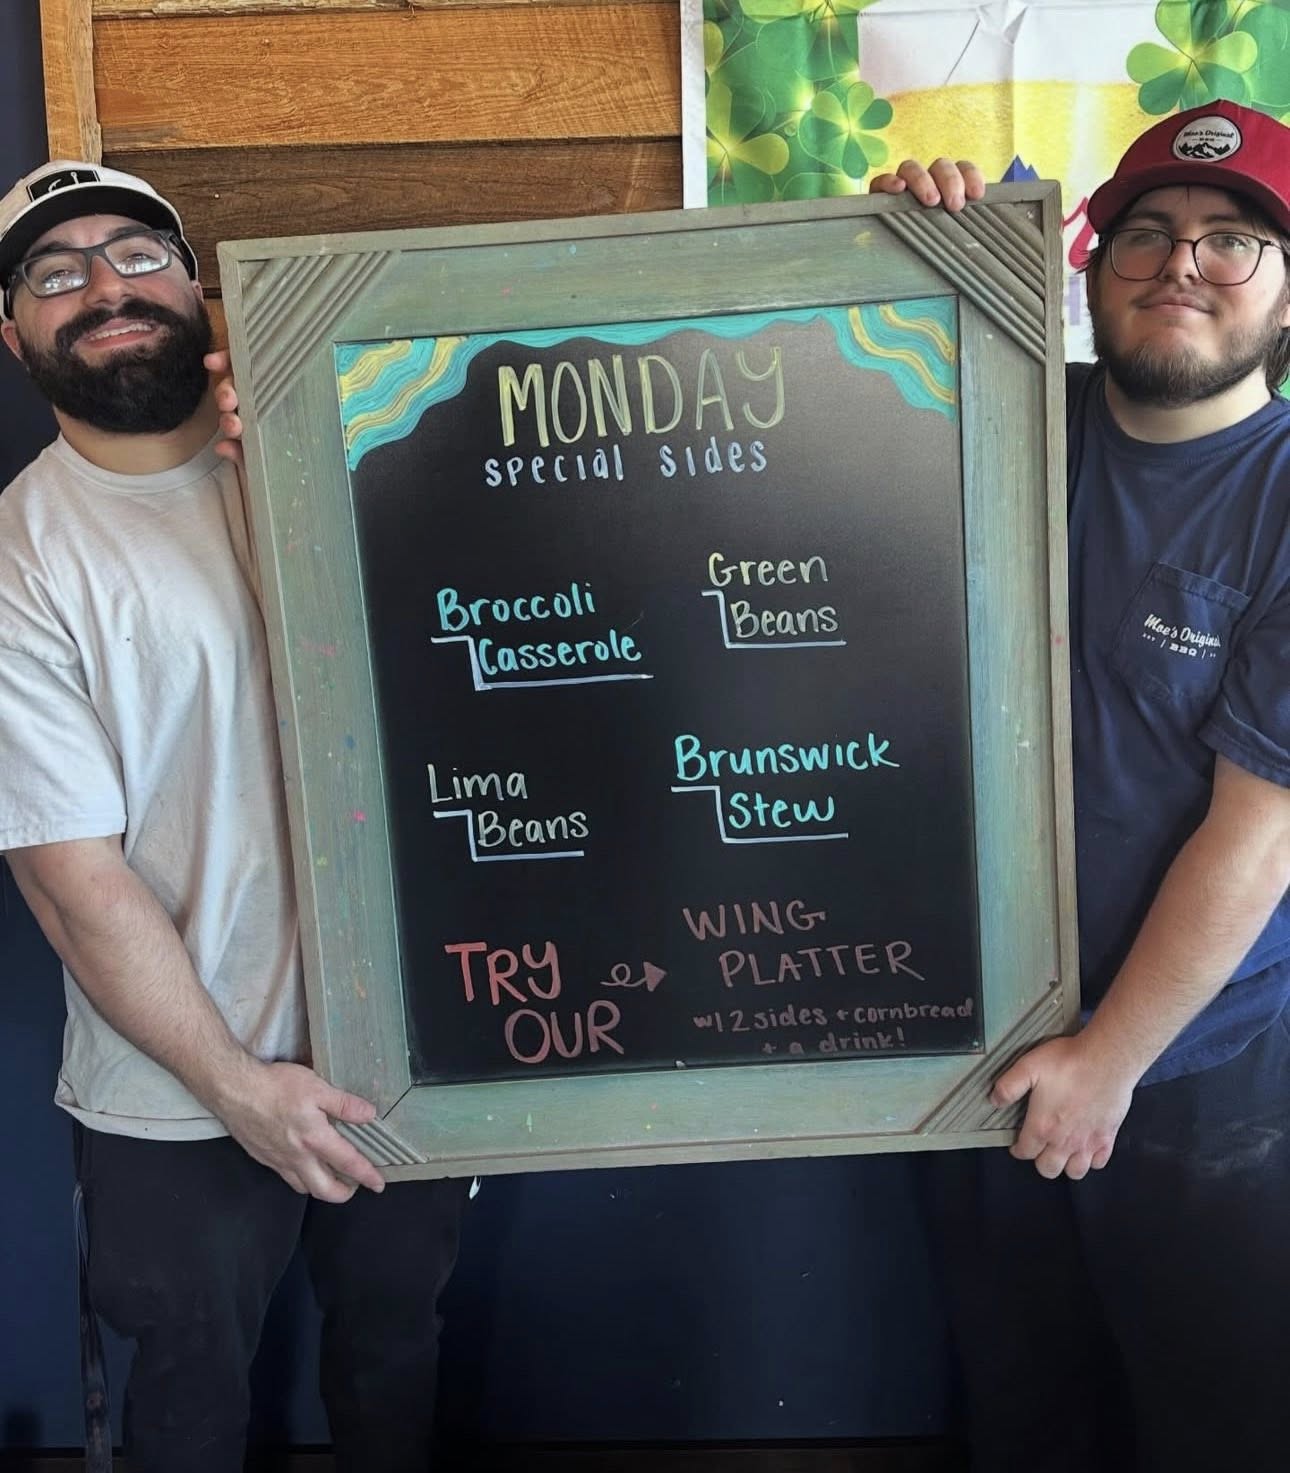 MONDAY
special sides
Broccoli
Casserole
Green
Beans
Lima
Beans
Brunswick
Stew
TRY
OUR
WING
PLATTER
w/ 2 sides + cornbread
+ a drink!
Moe's Original
BBQ
Moe's Original
BBQ